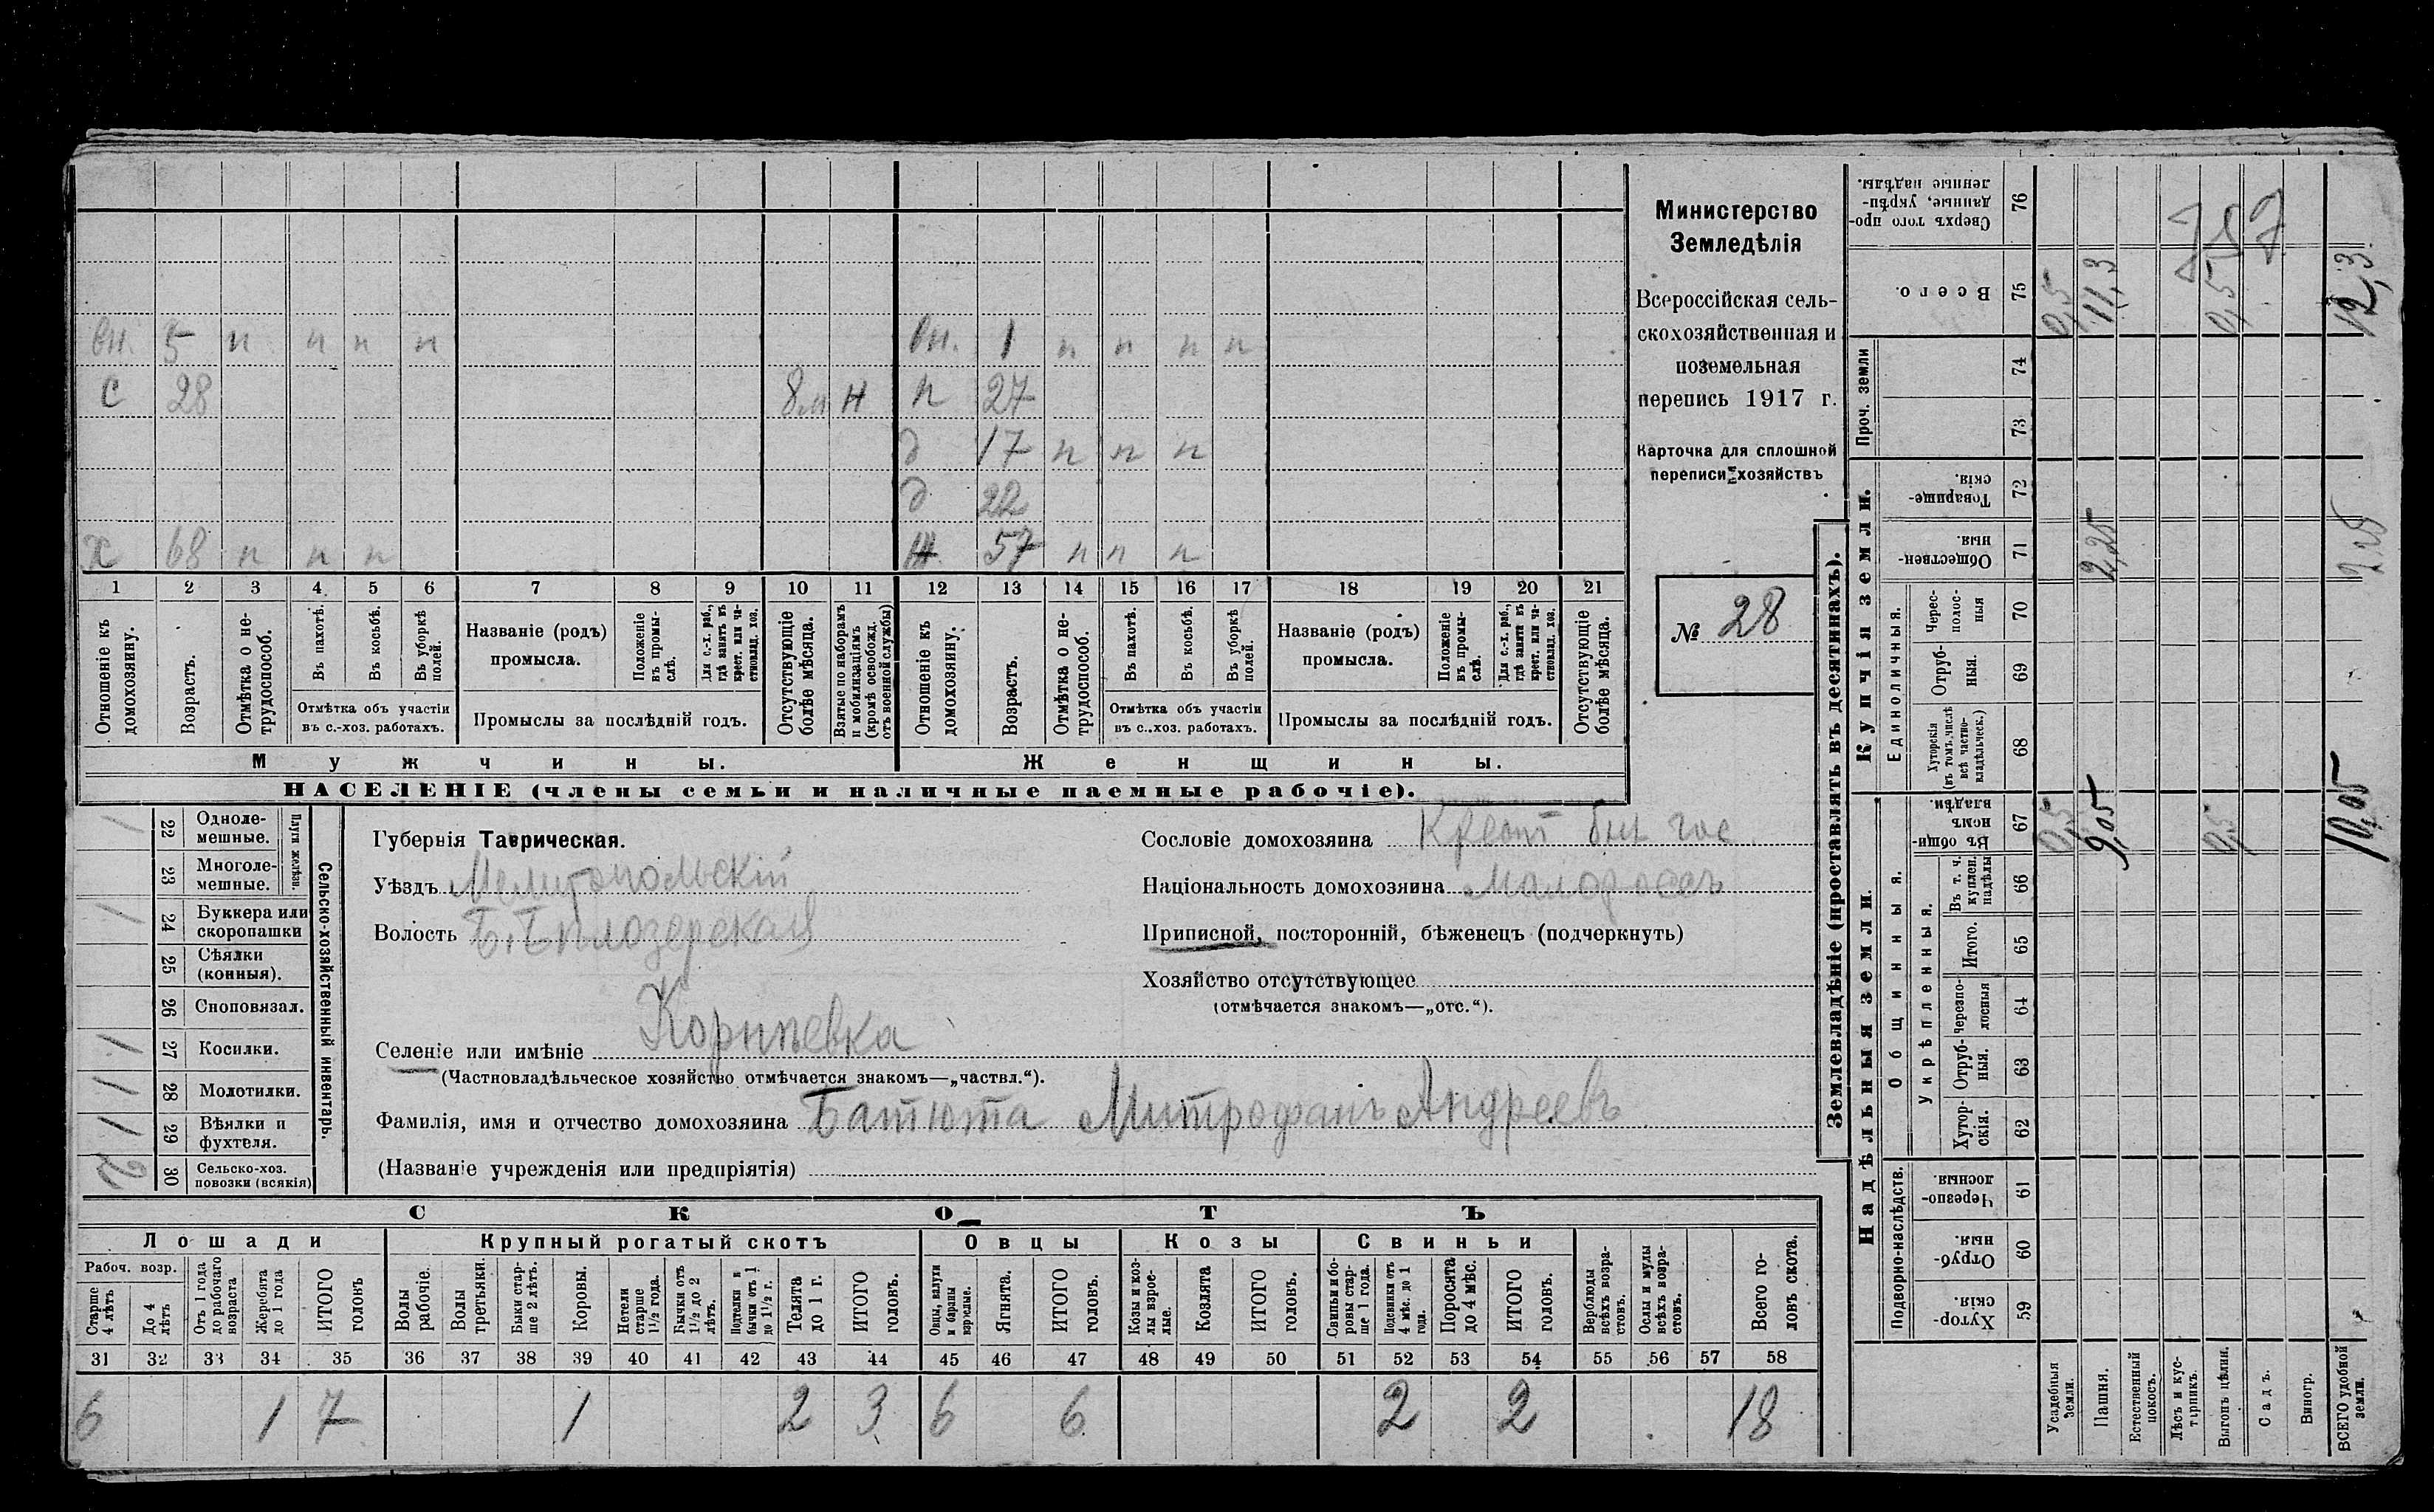 вн. 5 п п п п вн. 1 п п п п
с 28 8м н н 27
д 17 п п п
д 22
х 68 п п п ж 57 п п п
1 2 3 4 5 6 7 8 9 10 11 12 13 14 15 16 17 18 19 20 21
Отношеніе къ домохозяину.
Возрастъ.
Отмѣтка о не-трудоспособ.
Въ пахотѣ.
Въ косьбѣ.
Въ уборкѣ полей.
Отмѣтка объ участіи
въ с.-хоз. работахъ.
Названіе (родъ)
промысла.
Положеніе въ промы-слѣ.
Для с.-х. раб., гдѣ занятъ въ крест. или ча-стновлад. хоз.
Промыслы за послѣдній годъ.
Отсутствующіе болѣе мѣсяца.
Взятые по наборамъ и мобилизаціямъ (кромѣ освобожд. отъ военной службы)
Отношеніе къ домохозяину.
Возрастъ.
Отмѣтка о не-трудоспособ.
Въ пахотѣ.
Въ косьбѣ.
Въ уборкѣ полей.
Отмѣтка объ участіи
въ с.-хоз. работахъ.
Названіе (родъ)
промысла.
Положеніе въ промы-слѣ.
Для с.-х. раб., гдѣ занята въ крест. или ча-стновлад. хоз.
Промыслы за послѣдній годъ.
Отсутствующіе болѣе мѣсяца.
Мужчины. Женщины.
НАСЕЛЕНІЕ (члены семьи и наличные наемные рабочіе).
Министерство
Земледѣлія
Всероссійская сель-
скохозяйственная и
поземельная
перепись 1917 г.
Карточка для сплошной
переписи хозяйствъ
№ 28
1 22 Одноле-мешные.
23 Многоле-мешные.
Плуги желѣзн.
1 24 Буккера или скоропашки
25 Сѣялки (конныя).
26 Сноповязал.
1 27 Косилки.
1 28 Молотилки.
1 29 Вѣялки и фухтеля.
2 30 Сельско-хоз. повозки (всякія)
Сельско-хозяйственный инвентарь.
Губернія Таврическая.
Уѣздъ Мелитопольскій
Волость Б. Бѣлозерская
Селеніе или имѣніе Корнѣевка
(Частновладѣльческое хозяйство отмѣчается знакомъ—„частвл.“).
Фамилія, имя и отчество домохозяина Батюта Митрофанъ Андреевъ
(Названіе учрежденія или предпріятія)
Сословіе домохозяина Крест быв гос
Національность домохозяина Малороссъ
Приписной, посторонній, бѣженецъ (подчеркнуть)
Хозяйство отсутствующее
(отмѣчается знакомъ—„отс.“).
СКОТЪ
Лошади Крупный рогатый скотъ Овцы Козы Свиньи
Рабоч. возр.
Старше 4 лѣтъ
До 4 лѣтъ
Отъ 1 года до рабочаго возраста
Жеребята до 1 года
ИТОГО головъ
Волы рабочіе.
Волы третьяки.
Быки стар-ше 2 лѣтъ.
Коровы.
Нетели старше 1½ года.
Бычки отъ 1½ до 2 лѣтъ.
Подтелки и бычки отъ 1 до 1½ г.
Телята до 1 г.
ИТОГО головъ.
Овцы, валухи и бараны взрослые.
Ягнята.
ИТОГО головъ.
Козы и коз-лы взрос-лые.
Козлята
ИТОГО головъ.
Свиньи и бо-ровы стар-ше 1 года.
Подсвинки отъ 4 мѣс. до 1 года.
Поросята до 4 мѣс.
ИТОГО головъ.
Верблюды всѣхъ возра-стовъ.
Ослы и мулы всѣхъ возра-стовъ.
Всего го-ловъ скота.
31 32 33 34 35 36 37 38 39 40 41 42 43 44 45 46 47 48 49 50 51 52 53 54 55 56 57 58
6 1 7 1 2 3 6 6 2 2 18
Землевладѣніе (проставлять въ десятинахъ).
Надѣльныя земли. Купчія земли. Проч. земли
Подворно-наслѣдств.
Общинныя.
Укрѣпленныя.
Единоличныя.
59 Хутор-скія.
60 Отруб-ныя.
61 Черезпо-лосныя.
62 Хутор-скія.
63 Отруб-ныя.
64 Черезпо-лосныя
65 Итого.
66 Въ т. ч. куплен. надѣлы
67 Въ общин-номъ владѣн.
68 Хуторскія (въ томъ числѣ всѣ частно-владѣльческ.)
69 Отруб-ныя.
70 Черес-полос-ныя
71 Обществен-ныя.
72 Товарище-скія.
73
74
75 Всего.
76 Сверхъ того про-данные, укрѣп-ленные надѣлы.
Усадебныя земли. 0,5 0,5
Пашня. 9,05 2,25 11,3
Естественный покосъ.
Лѣсъ и кус-тарникъ.
Выгонъ цѣлин. 0,5 0,5
Садъ.
Виногр.
ВСЕГО удобной земли. 10,05 2,25 12,3